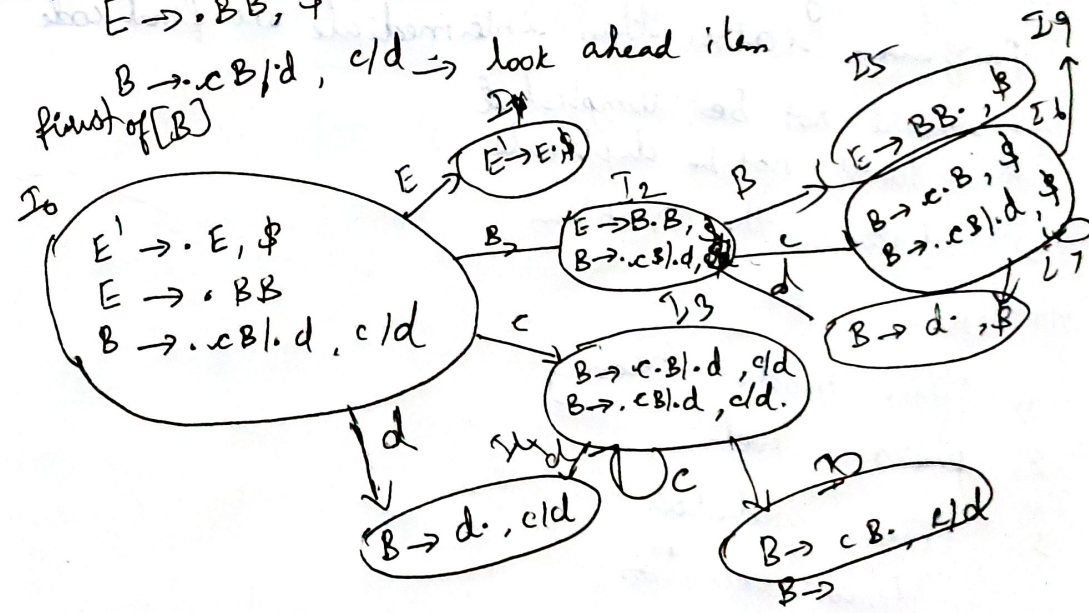 E → . BB, $
B → . cB/.d, c/d → look ahead item
first of [B]
I0
E' → . E, $
E → . BB
B → . cB/.d, c/d
E
E' → E. $
B
I2
E → B.B, $
B → . cB/.d, $
B
I5
E → BB. , $
c
I6
B → c.B, $
B → . cB/.d, $
I9
d
I7
B → d. , $
c
I3
B → c.B/.d , c/d
B → . cB/.d, c/d.
c
d
d
B → d. , c/d
B → cB. , c/d
B →